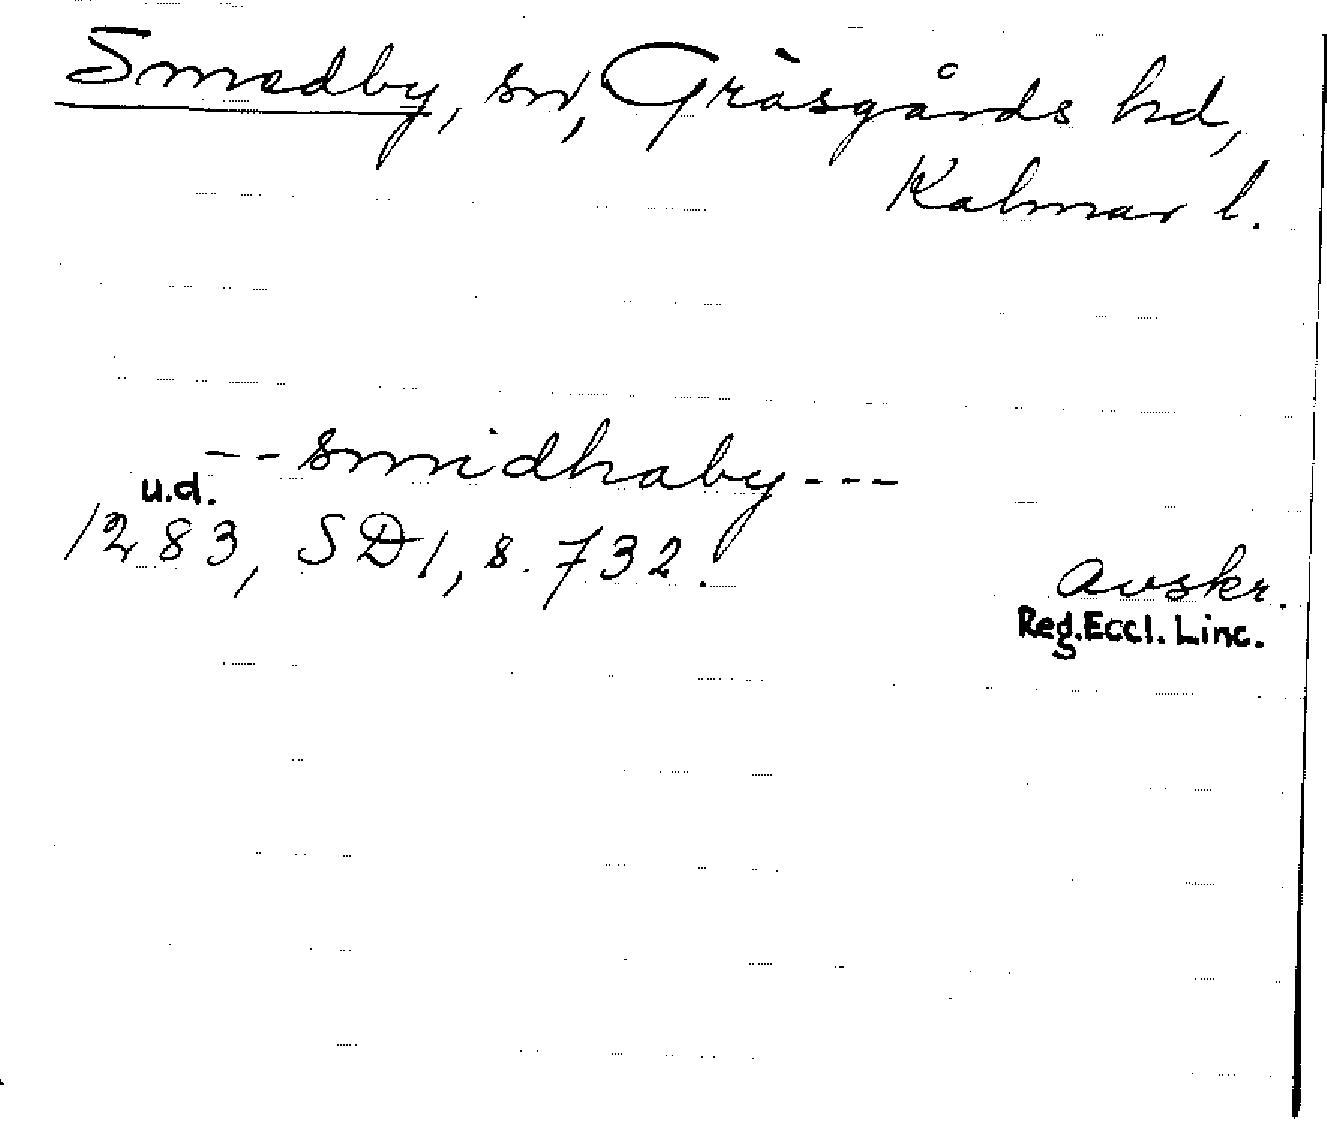 Smedby, sn, Gräsgårds hd,
Kalmar l.
--smidhaby---
u.d.
1283, SD1, s. 732.
avskr.
Reg.Eccl. Linc.